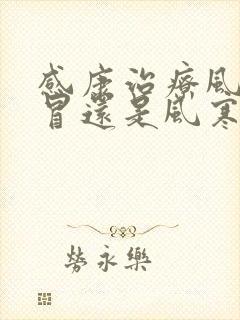 感康治療風
冒還是風寒
勞永樂